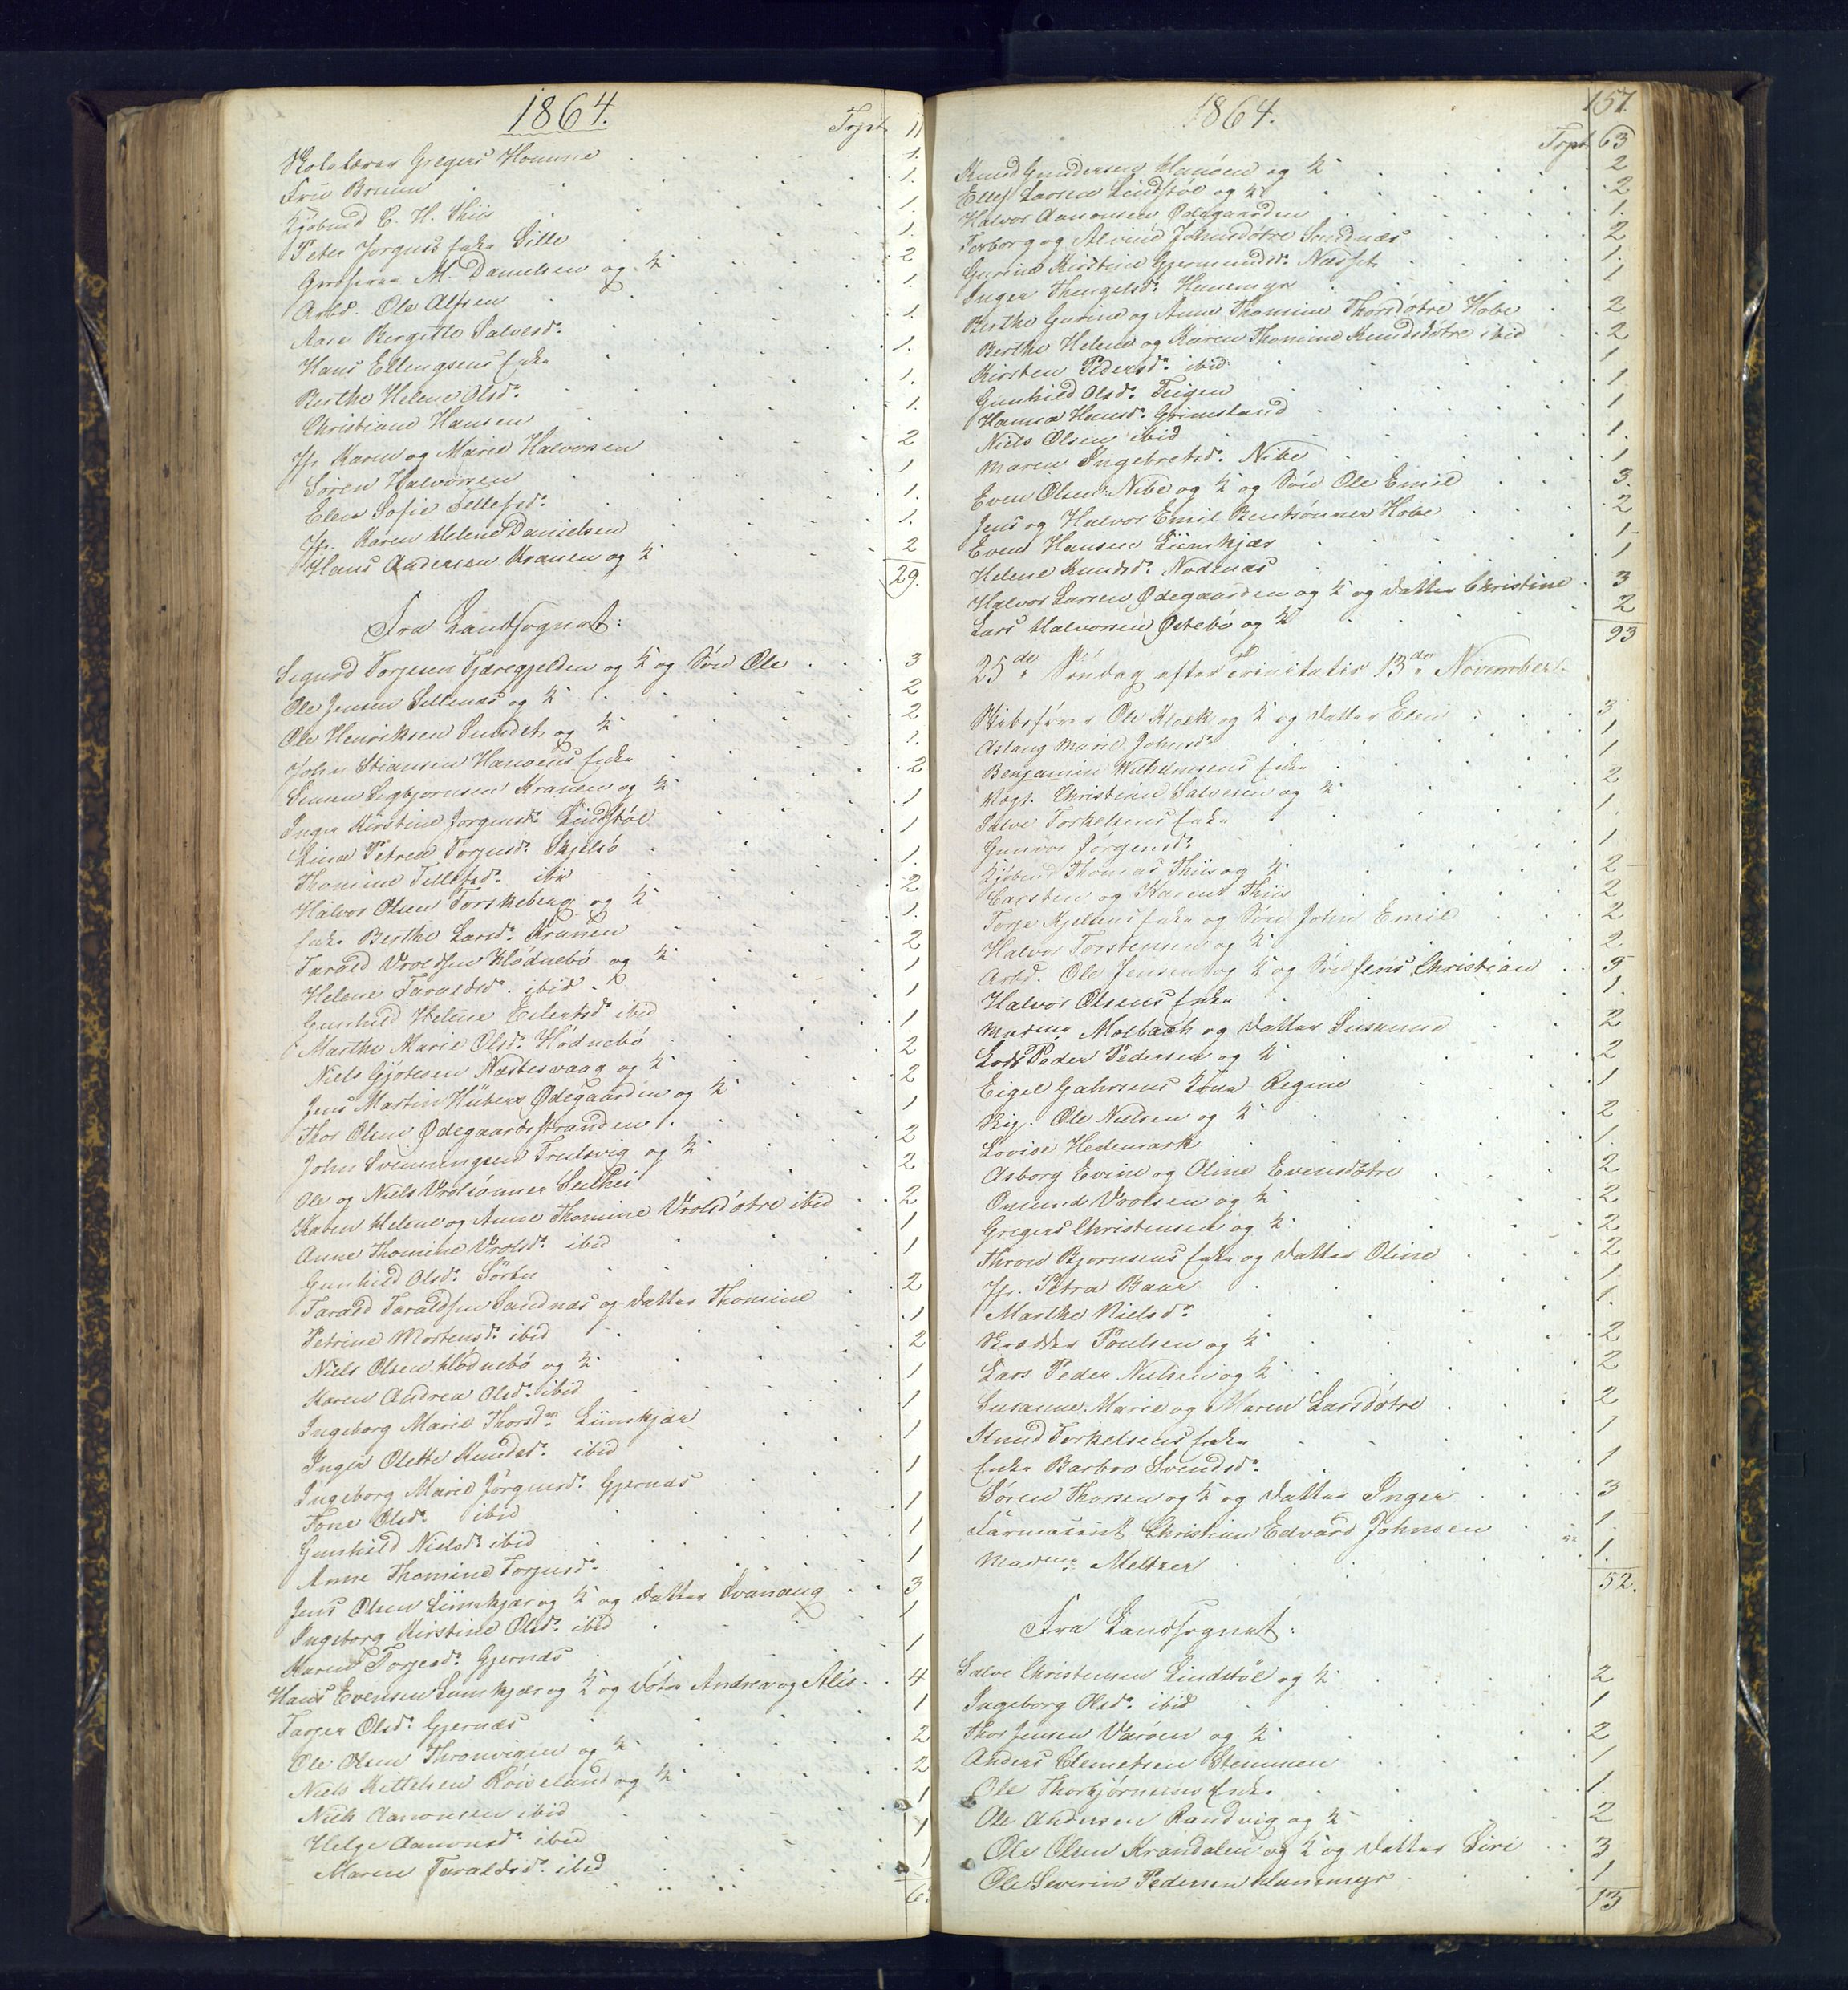 1864.
Trpt. 11
Skolelærer Gregers Homme 1.
Frue Bruun 1.
Kjøbmd C. H. Thiis 1.
Peter Jørgens Enke Sille 1.
Grosserer M. Danielsen og K. 2
Arbd. Ole Alfsen 1.
Aase Bergitte Salvesd. 1.
Hans Ellingsens Enke 1.
Berthe Helene Olsd. 1.
Christiane Hansen 1.
Jfr. Karen og Marie Halvorsen 2
Søren Halvorsen 1
Elen Sofie Tellefsd. 1.
Jfr. Karen Helene Danielsen 1.
Hans Andersen Kranen og K. 2
29.
Fra Landsognet:
Sigurd Torjesen Tjæregjelden og K. og Søn Ole 3
Ole Jensen Sellenæs og K. 2
Ole Henriksen Sundet og K. 2
John Stiansen Hanoens Enke 1.
Simen Sigbjørnsen Kranen og K. 2
Inger Kirstine Jørgensd. Lindstøl 1
Lina Petrea Torjusd. Skjelsø 1
Thomine Tellefsd. ibid 1.
Halvor Olsen Torskeberg og K. 2
Enke Berthe Larsd. Kranen 1.
Tarald Vroldsen Hødnebø og K. 2
Helene Taraldsd. ibid. 1
Gunhild Helene Eilertsd. ibid 1
Marthe Marie Olsd. Hødnebø 1
Niels Gjøtesen Næstesvaag og K. 2
Jens Martin Hübert Ødegaarden og K. 2
Thor Olsen Ødegaardsstranden 1
John Svenningsen Trulsvig og K. 2
Ole og Niels Vrolsønner Skuthei 2
Karen Helene og Anne Thomine Vrolsdøtre ibid 2
Anne Thomine Vrolsd. ibid 1
Gunhild Olsd. Sørbø 1
Tarald Taraldsen Sandnæs og Datter Thomine 2
Petrine Mortensd. ibid 1
Niels Olsen Hødnebø og K. 2
Karen Andrea Olsd. ibid 1
Ingeborg Marie Thorsd. Limkjær 1
Inger Olette Knudsd. ibid 1
Ingeborg Marie Jørgensd. Gjernæs 1
Tone Olsd. ibid 1
Gunhild Nielsd. ibid 1
Anne Thomine Torjusd. 1
Jens Olsen Limkjær og K. og Datter Svanaug 3
Ingeborg Kirstine Olsd. ibid 1
Karen Torjesd. Gjernæs 1
Hans Evensen Limkjær og K. og Døtre Andrea og Alis 4
Tarjer Olsd. Gjernæs 1
Ole Olsen Thronvigen og K. 2
Niels Kittelsen Røiseland og K. 2
Niels Aanonsen ibid 1
Helge Aanonsd. ibid 1
Maren Taraldsd. ibid 1
63
1864.
157.
Trpt. 63
Knud Gundersen Hanøen og K. 2
Ellef Larsen Lindstøl og K. 2
Halvor Aanonsen Ødegaarden 1.
Torborg og Alvine Johnsdøtre Sandnæs 2
Gurine Kirstine Gjermundsd. Næsset 1.
Inger Thengelsd. Hummyr 1
Berthe Gurine og Anne Thomine Thorsdøtre Hobe 2
Berthe Helene og Karen Thomine Knudsdøtre ibid 2
Kirsten Pedersd. ibid 1
Gunhild Olsd. Teigen 1.
Hanna Hansd. Grimsland 1
Niels Olsen ibid 1.
Maren Ingebretsd. Nibe 1
Even Olsen Nibe og K. og Søn Ole Emil 3.
Jens og Halvor Emil Bentsønner Hobe 2
Even Hansen Limkjær 1.
Helene Knudsd. Nodenæs 1
Halvor Larsen Ødegaarden og K. og Datter Christine 3
Lars Halvorsen Østebø og K. 2
93
25de Søndag efter Trinitatis 13de November.
Skibsfører Ole Kloek og K. og Datter Elen 3
Aslaug Marie Johnsd. 1
Benjamin Wilhelmsens Enke 1
Vægt. Christine Salvesen og K. 2
Salve Torkelsens Enke 1.
Gunvor Jørgensd. 1
Kjøbmd Thomas Thiis og K. 2
Carsten og Karens Thiis 2
Torje Kjelsens Enke og Søn John Emil 2
Halvor Torstensen og K. 2
Arbd. Ole Jensen og K. og Søn Jens Christian 3
Halvor Olsens Enke 1.
Madme Molbach og Datter Susanne 2
Lods Peder Pedersen og K. 2
Eigel Gahrsens Kone Regine 1
Rig. Ole Nielsen og K. 2
Lovise Hedemark 1.
Asborg Evine og Oline Evensdøtre 2
Omund Vrolsen og K. 2
Gregers Christensen og K. 2
Thron Bjørnsens Enke og Datter Oline 2
Jfr. Petra Baar 1
Marthe Nielsd. 1.
Skrædder Poulsen og K. 2
Lars Peder Nielsen og K. 2
Susanne Marie og Maren Larsdøtre 2
Knud Torkelsens Enke 1
Enke Barbro Svendsd. 1
Søren Thorsen og K. og Datter Inger 3
Farmaceut Christian Edvard Johnsen 1.
Madme Meltzer 1.
52.
Fra Landsognet:
Salve Christensen Lindstøl og K. 2
Ingeborg Olsd. ibid 1
Thor Jensen Varøen og K. 2
Anders Clemetsen Stemmen 1
Ole Thorbjørnsens Enke 1.
Ole Andersen Randvig og K. 2
Ole Olsen Krandalen og K. og Datter Siri 3
Ole Severin Pedersen Hummyr 1
13